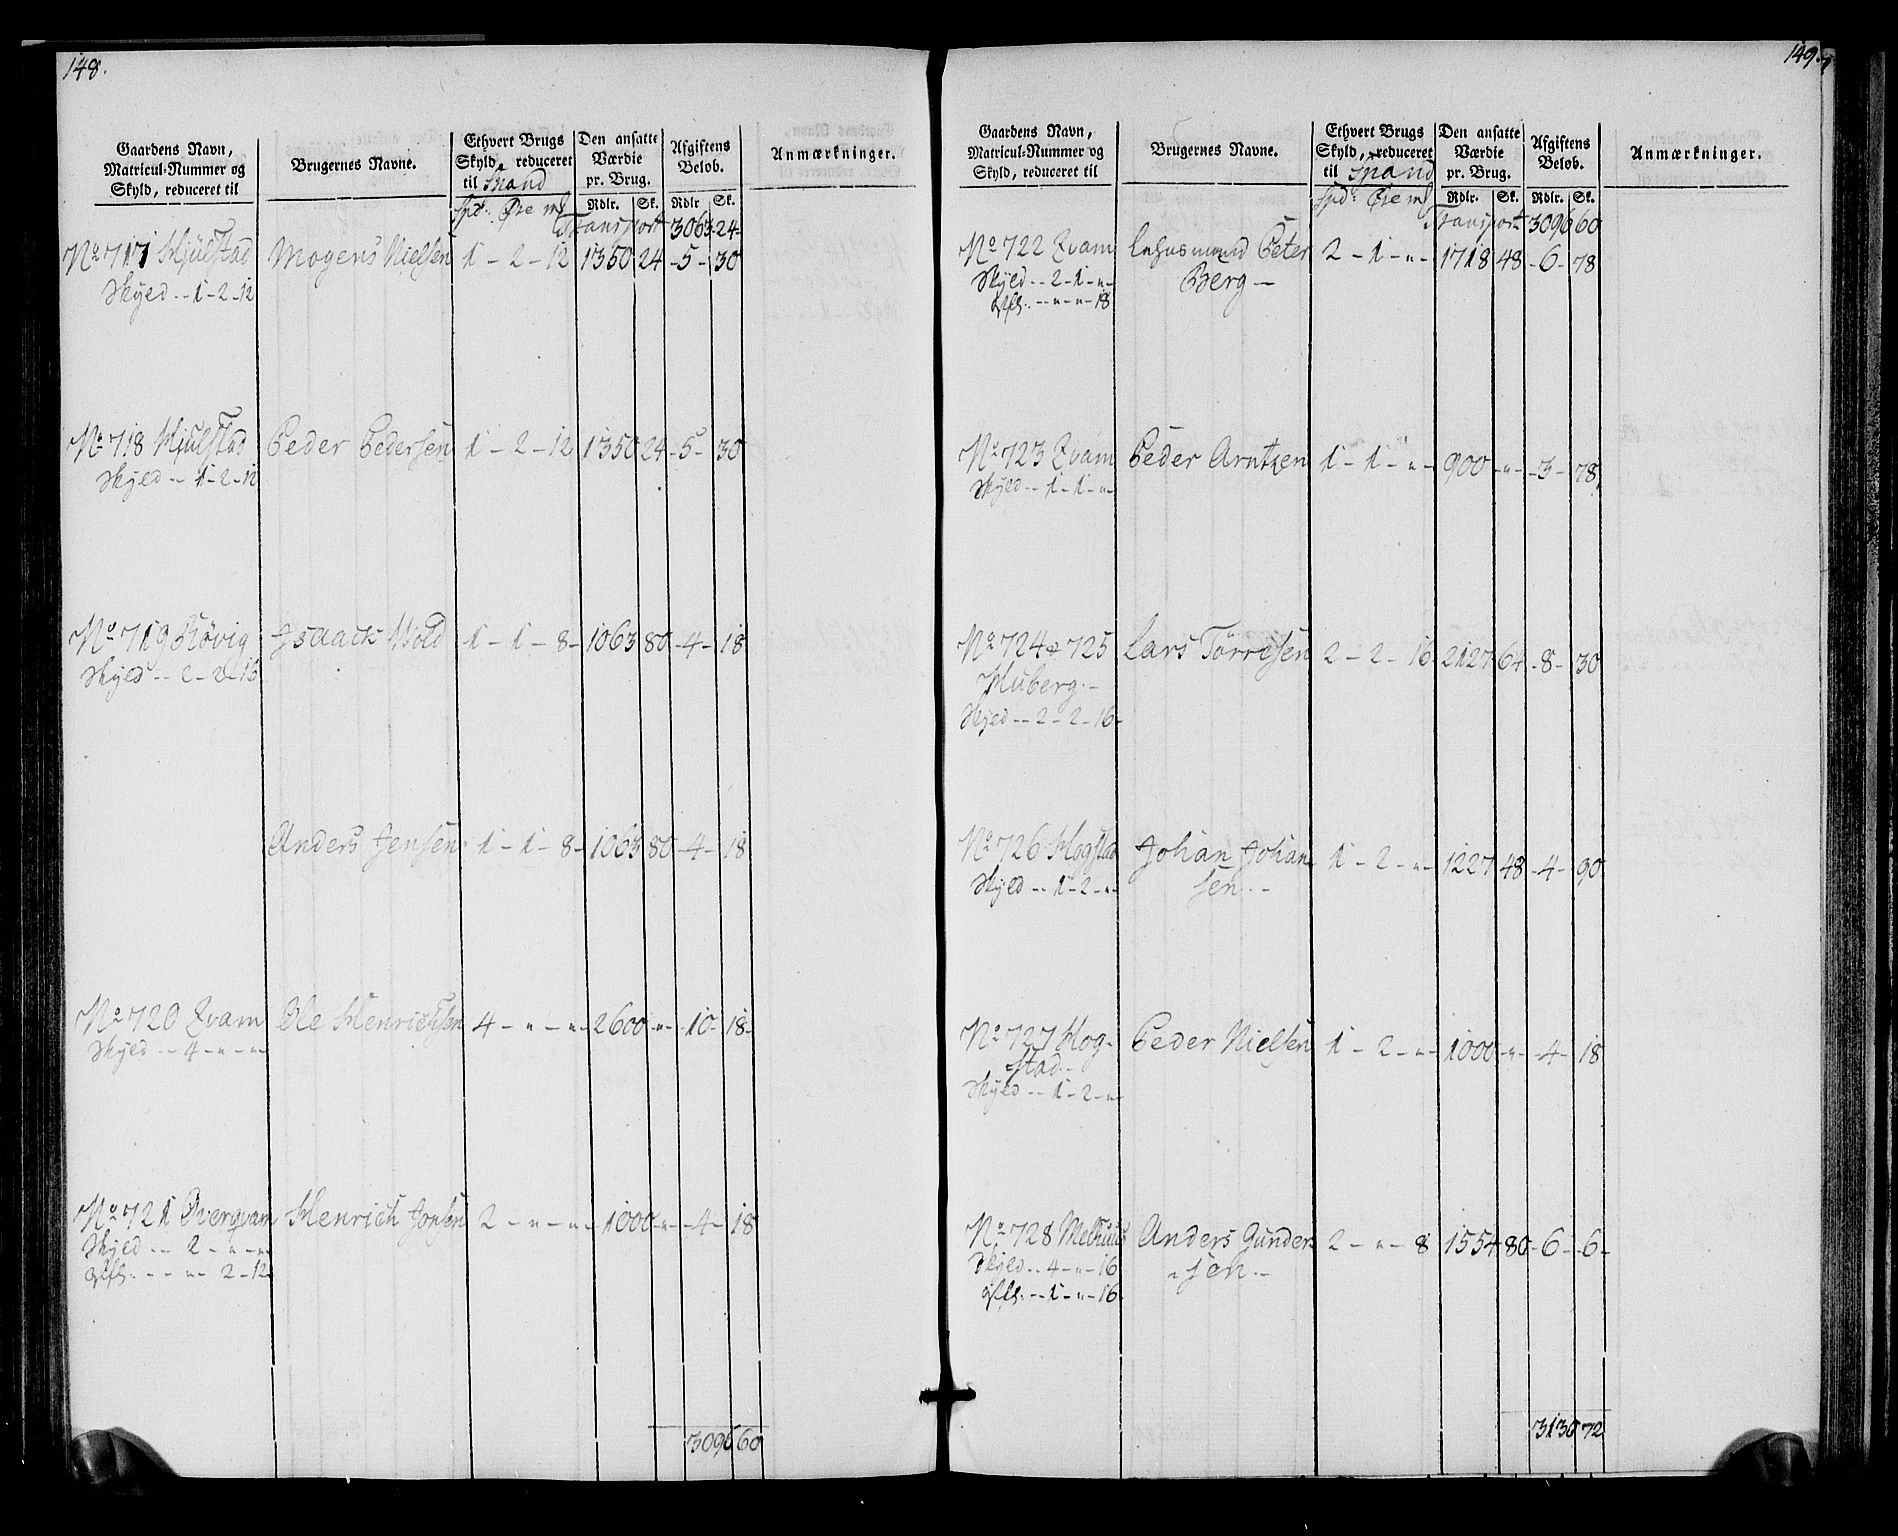 148.
Gaardens Navn, Matricul-Nummer og Skyld, reduceret til
Brugernes Navne.
Ethvert Brugs Skyld, reduceret til Spand
Den ansatte Værdie pr. Brug.
Afgiftens Beløb.
Anmærkninger.
Spd: Øre mf
Rdlr. Sk. Rdlr Sk.
Transport 3063 24
No 717 Hjulstad Mogens Nielsen 1 - 2 - 12 1350 24 - 5 - 30
Skyld -- 1 - 2 - 12
No 718 Hjulstad Peder Pedersen 1 - 2 - 12 1350 24 - 5 - 30
Skyld -- 1 - 2 - 12
No 719 Røvig Isaack Wold 1 - 1 - 8 - 1063 80 - 4 - 18
Skyld -- 2 - 2 - 16
Anders Jensen 1 - 1 - 8 - 1063 80 - 4 - 18
No 720 Qvam Ole Henrichsen 4 - " - " - 2600 " - 10 - 18 -
Skyld -- 4 - " - "
No 721 Overqvam Henrich Jonsen 2 - " - " - 1000 - " - 4 - 18
Skyld -- 2 - " - "
Afl. -- " - 2 - 12
3096 60
149.
Gaardens Navn, Matricul-Nummer og Skyld, reduceret til
Brugernes Navne.
Ethvert Brugs Skyld, reduceret til Spand
Den ansatte Værdie pr. Brug.
Afgiftens Beløb.
Anmærkninger.
Spd: Øre mf
Rdlr. Sk. Rdlr. Sk.
Transport 3096 60
No 722 Qvam Lehnsmand Peter 2 - 1 - " - 1718 48 - 6 - 78
Skyld -- 2 - 1 - " Berg -
Afl. -- " - " - 18
No 723 Qvam Peder Arntzen 1 - 1 - " - 900 - " - 3 - 78
Skyld -- 1 - 1 - "
No 724 & 725 Lars Tørresen 2 - 2 - 16 2127 64 - 8 - 30
Huberg -
Skyld -- 2 - 2 - 16
No 726 Hogstad Johan Johan 1 - 2 - " - 1227 48 - 4 - 90
Skyld -- 1 - 2 - " sen -
No 727 Hog- Peder Nielsen 1 - 2 - " - 1000 - " - 4 - 18
stad -
Skyld -- 1 - 2 - "
No 728 Melhuus Anders Gunder 2 - " - 8 1554 80 - 6 - 6 -
Skyld -- 4 - " - 16 sen -
Afl. -- 1 - " - 16
3130 72